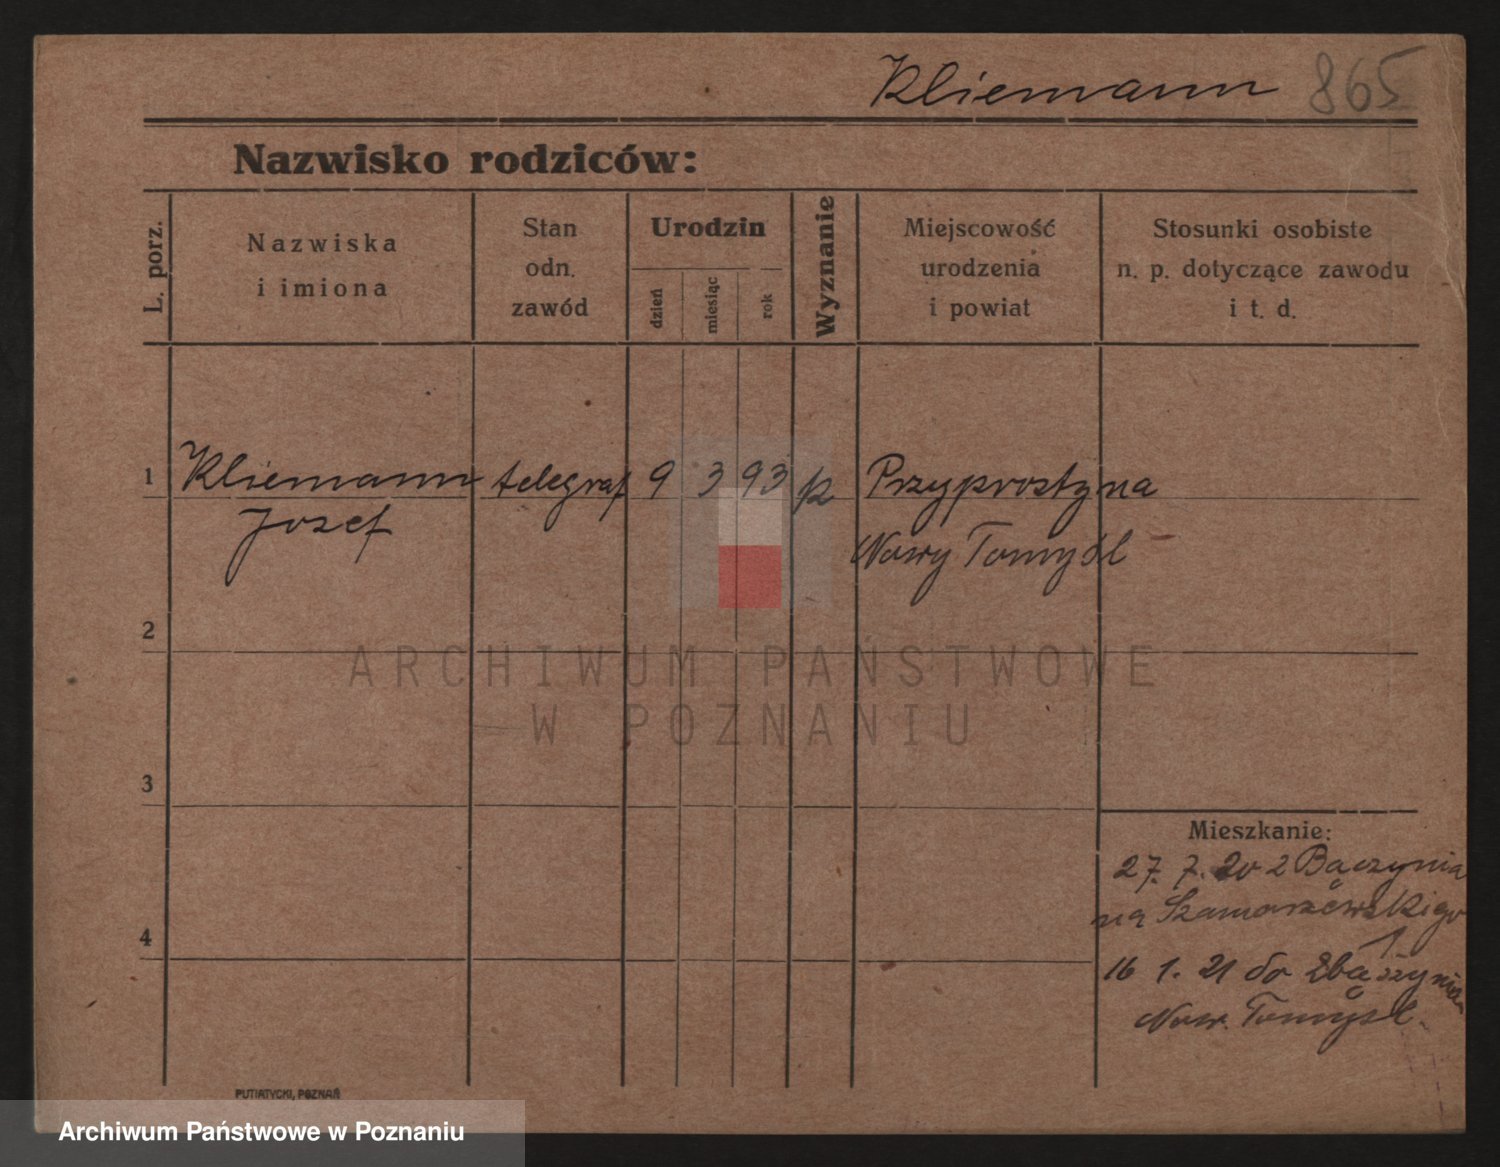 Kliemann 865
Nazwisko rodziców:
L. porz.
Nazwiska
i imiona
Stan
odn.
zawód
Urodzin
dzień
miesiąc
rok
Wyznanie
Miejscowość
urodzenia
i powiat
Stosunki osobiste
n. p. dotyczące zawodu
i t. d.
1 Kliemann telegraf 9 3 93 Przyprostyna
Jozef Nowy Tomyśl
2
ARCHIWUM PAŃSTWOWE
W POZNANIU
3
Mieszkanie:
27. 7. 20 z
na Szamarzewskiego
4
16 1. 21 do
Now. Tomyśl.
PUTIATYCKI, POZNAŃ
Archiwum Państwowe w Poznaniu